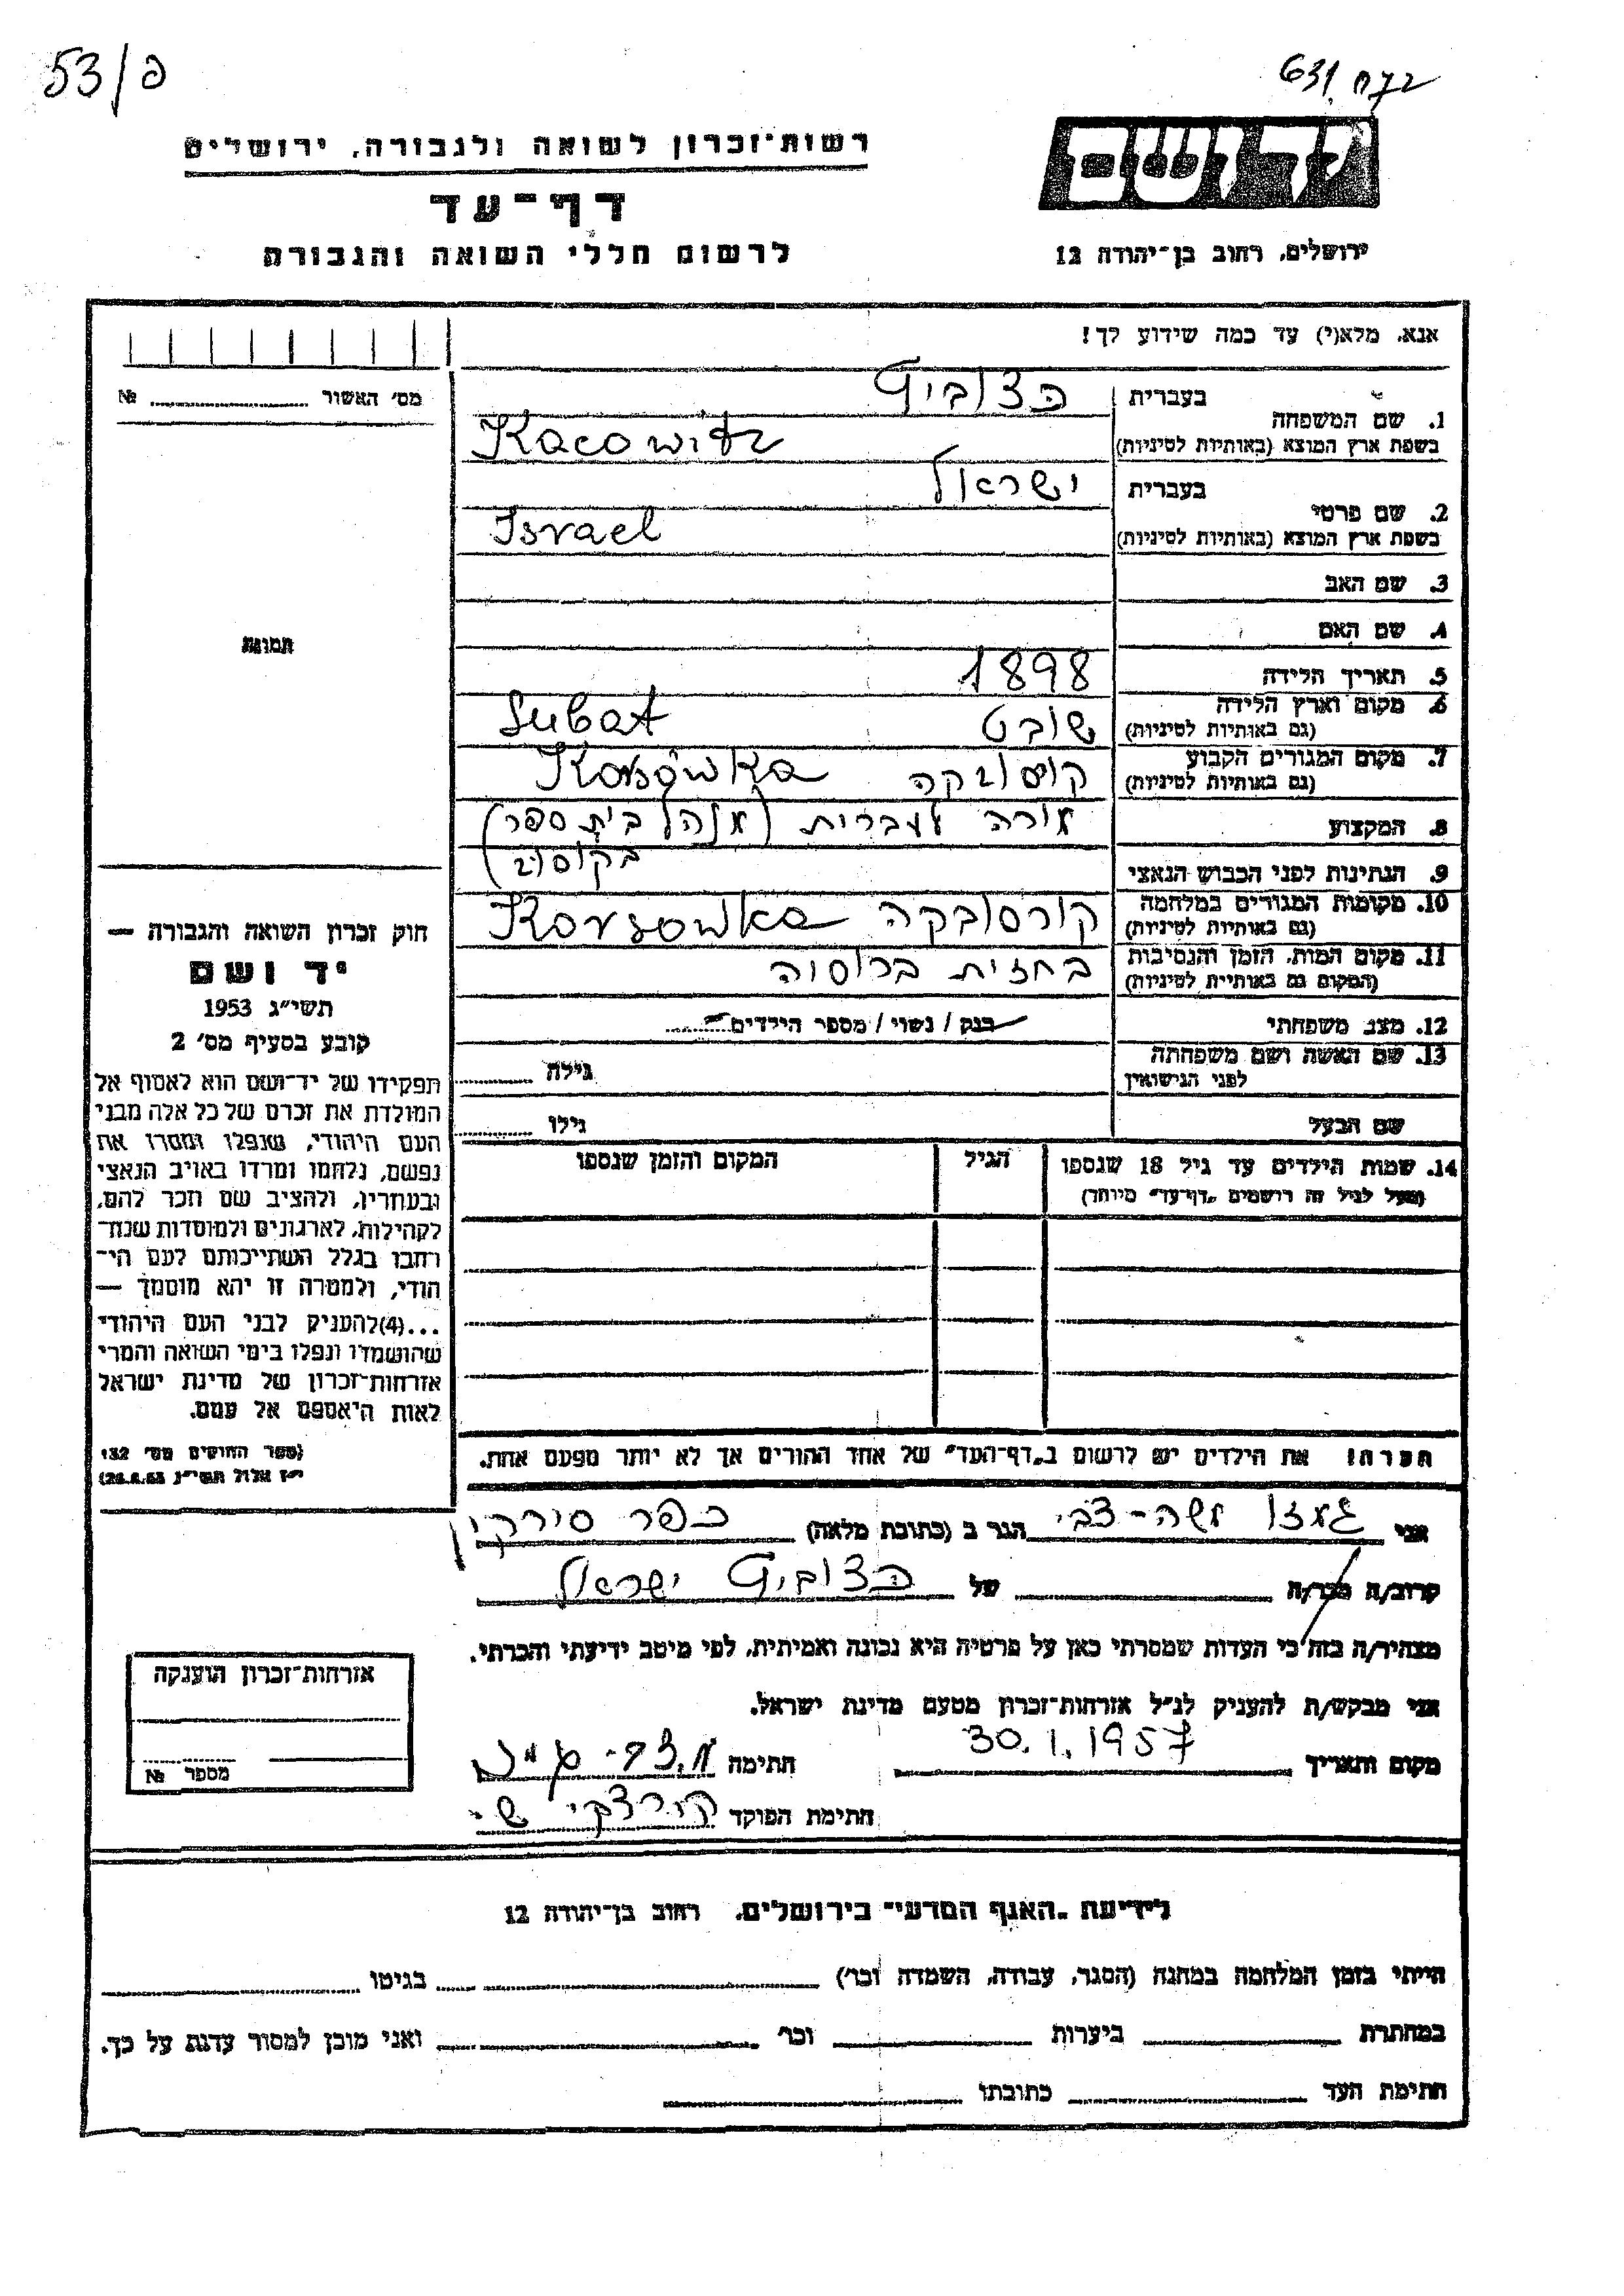 53/פ
631
רשות־זכרון לשואה ולגבורה, ירושלים
דף־עד
לרשום חללי השואה והגבורה
יד ושם
ירושלים, רחוב בן־יהודה 12
אנא, מלא(י) עד כמה שידוע לך!
מס׳ האשור №
1. שם המשפחה
בעברית
כצוביץ
בשפת ארץ המוצא (באותיות לטיניות)
Kacowitz
2. שם פרטי
בעברית
ישראל
בשפת ארץ המוצא (באותיות לטיניות)
Israel
3. שם האב
4. שם האם
5. תאריך הלידה 1898
6. מקום וארץ הלידה
(גם באותיות לטיניות)
שובט Subat
7. מקום המגורים הקבוע
(גם באותיות לטיניות)
8. המקצוע
מורה לעברית (מנהל בית ספר
9. הנתינות לפני הכבוש הנאצי
10. מקומות המגורים במלחמה
(גם באותיות לטיניות)
קורסובקה Korsowka
11. מקום המות, הזמן והנסיבות
(המקום גם באותיות לטיניות)
בחזית ברוסיה
12. מצב משפחתי רווק / נשוי / מספר הילדים
13. שם האשה ושם משפחתה
לפני הנישואין
גילה
שם הבעל גילו
14. שמות הילדים עד גיל 18 שנספו הגיל המקום והזמן שנספו
(מעל לגיל זה רושמים „דף־עד״ מיוחד)
הערה! את הילדים יש לרשום ב„דף־העד״ של אחד ההורים אך לא יותר מפעם אחת.
תמונה
חוק זכרון השואה והגבורה —
יד ושם
תשי״ג 1953
קובע בסעיף מס׳ 2
תפקידו של יד־ושם הוא לאסוף אל
המולדת את זכרם של כל אלה מבני
העם היהודי, שנפלו ומסרו את
נפשם, נלחמו ומרדו באויב הנאצי
ובעוזריו, ולהציב שם וזכר להם,
לקהילות, לארגונים ולמוסדות שנח־
רבו בגלל השתייכותם לעם הי־
הודי, ולמטרה זו יהא מוסמך —
...(4) להעניק לבני העם היהודי
שהושמדו ונפלו בימי השואה והמרי
אזרחות־זכרון של מדינת ישראל
לאות היאספם אל עמם.
(ספר החוקים מס׳ 132
אני גמזו משה-צבי הגר ב (כתובת מלאה) כפר סירקין
קרוב/ה מכר/ה של כצוביץ ישראל
מצהיר/ה בזה כי העדות שמסרתי כאן על פרטיה היא נכונה ואמיתית, לפי מיטב ידיעתי והכרתי.
אני מבקש/ת להעניק לנ״ל אזרחות־זכרון מטעם מדינת ישראל.
מקום ותאריך 30.1.1957 חתימה
חתימת הפוקד
אזרחות־זכרון הוענקה
מספר №
לידיעת „האגף המדעי״ בירושלים, רחוב בן־יהודה 12
הייתי בזמן המלחמה במחנה (הסגר, עבודה, השמדה וכו׳) בגיטו
במחתרת ביערות וכו׳ ואני מוכן למסור עדות על כך.
חתימת העד כתובתו